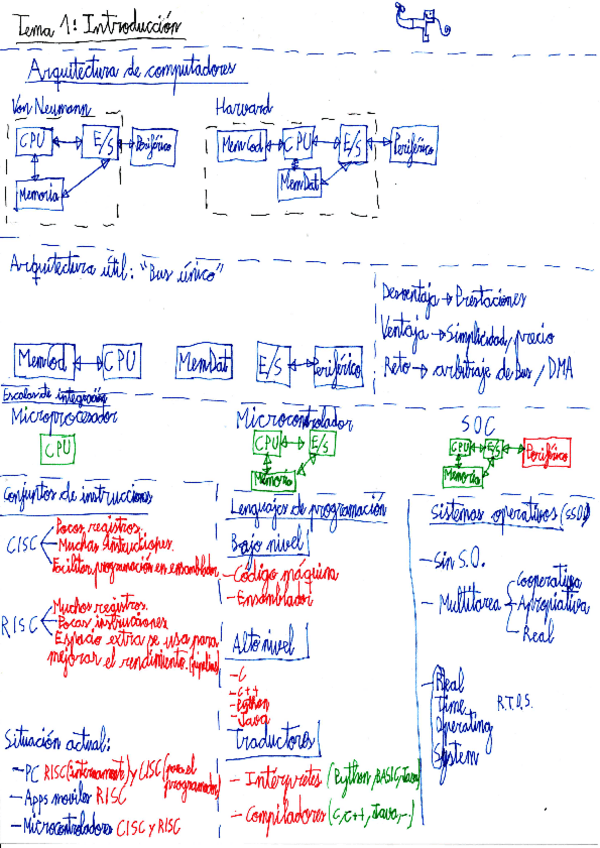 Tema 1: Introducción
Arquitectura de computadores
Von Neumann
CPU
E/S
Periférico
Memoria
Harvard
MemCod
CPU
E/S
Periférico
MemDat
Arquitectura útil: "Bus único"
Desventaja → Prestaciones
Ventaja → Simplicidad/precio
Reto → arbitraje de bus / DMA
MemCod
CPU
MemDat
E/S
Periférico
Escalas de integración
Microprocesador
CPU
Microcontrolador
CPU
E/S
Memoria
SOC
CPU
E/S
Periférico
Memoria
Conjuntos de instrucciones
CISC
Pocos registros.
Muchas instrucciones.
Facilitar programación en ensamblador
RISC
Muchos registros.
Pocas instrucciones
Espacio extra se usa para
mejorar el rendimiento. (pipeline)
Situación actual:
- PC RISC (internamente) y CISC (para el
programador)
- Apps moviles RISC
- Microcontroladores CISC y RISC
Lenguajes de programación
Bajo nivel
- Código máquina
- Ensamblador
Alto nivel
- C
- C++
- Python
- Java
Traductores
- Intérpretes (Python, BASIC, Java)
- Compiladores (C, C++, Java, ...)
Sistemas operativos (SSOO)
- Sin S.O.
- Multitarea
Cooperativa
Apropiativa
Real
- Real
Time
Operating
System
R.T.O.S.